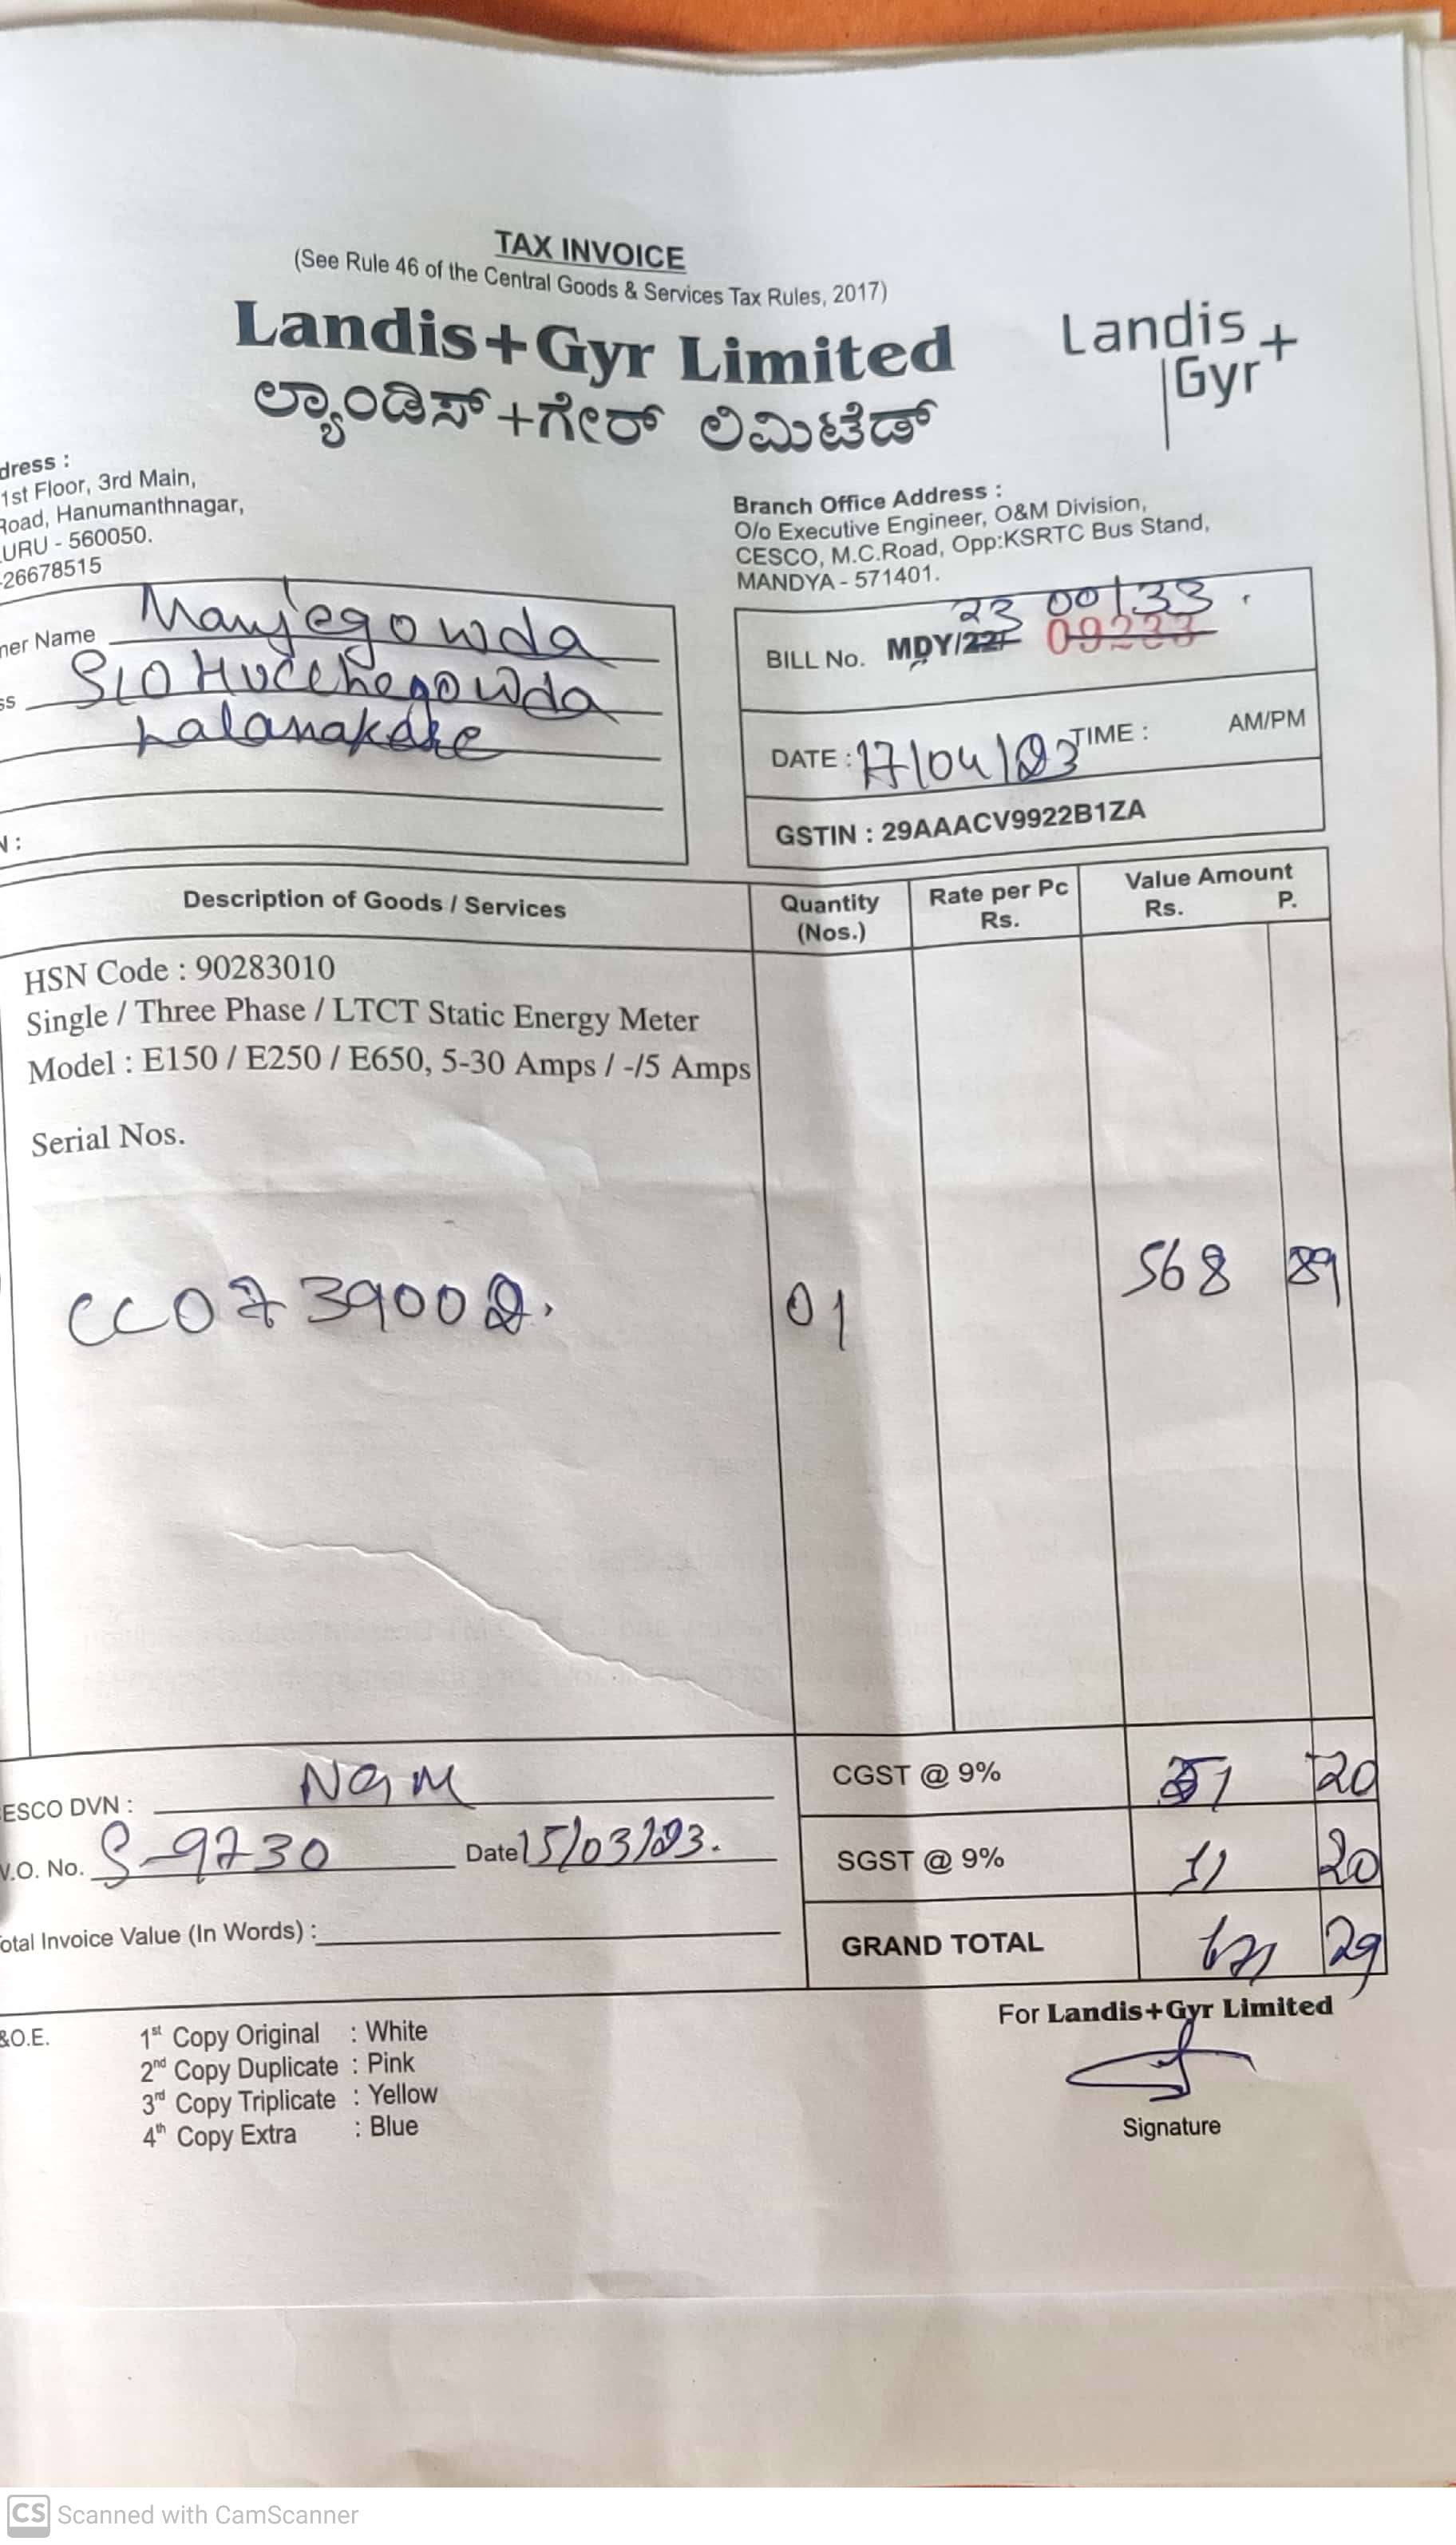 TAX INVOICE
(See Rule 46 of the Central Goods & Services Tax Rules, 2017)
Landis+Gyr Limited
ಲ್ಯಾಂಡಿಸ್+ಗೇರ್ ಲಿಮಿಟೆಡ್
Landis
Gyr+
dress :
1st Floor, 3rd Main,
Road, Hanumanthnagar,
URU - 560050.
-26678515
Branch Office Address :
O/o Executive Engineer, O&M Division,
CESCO, M.C.Road, Opp:KSRTC Bus Stand,
MANDYA - 571401.
ner Name Manjegowda
ss S/O Hucchegowda
Lalanakere
N :
23 00133
BILL No. MDY/22/ 09233
DATE : 17/04/23 TIME : AM/PM
GSTIN : 29AAACV9922B1ZA
Description of Goods / Services Quantity (Nos.) Rate per Pc Rs. Value Amount Rs. P.
HSN Code : 90283010
Single / Three Phase / LTCT Static Energy Meter
Model : E150 / E250 / E650, 5-30 Amps / -/5 Amps
Serial Nos.
CC0739002. 01 568 89
ESCO DVN : NGM
V.O. No. S-9730 Date 15/03/23.
otal Invoice Value (In Words) :
CGST @ 9% 51 20
SGST @ 9% 51 20
GRAND TOTAL 671 29
&O.E.
1st Copy Original : White
2nd Copy Duplicate : Pink
3rd Copy Triplicate : Yellow
4th Copy Extra : Blue
For Landis+Gyr Limited
Signature
CS Scanned with CamScanner